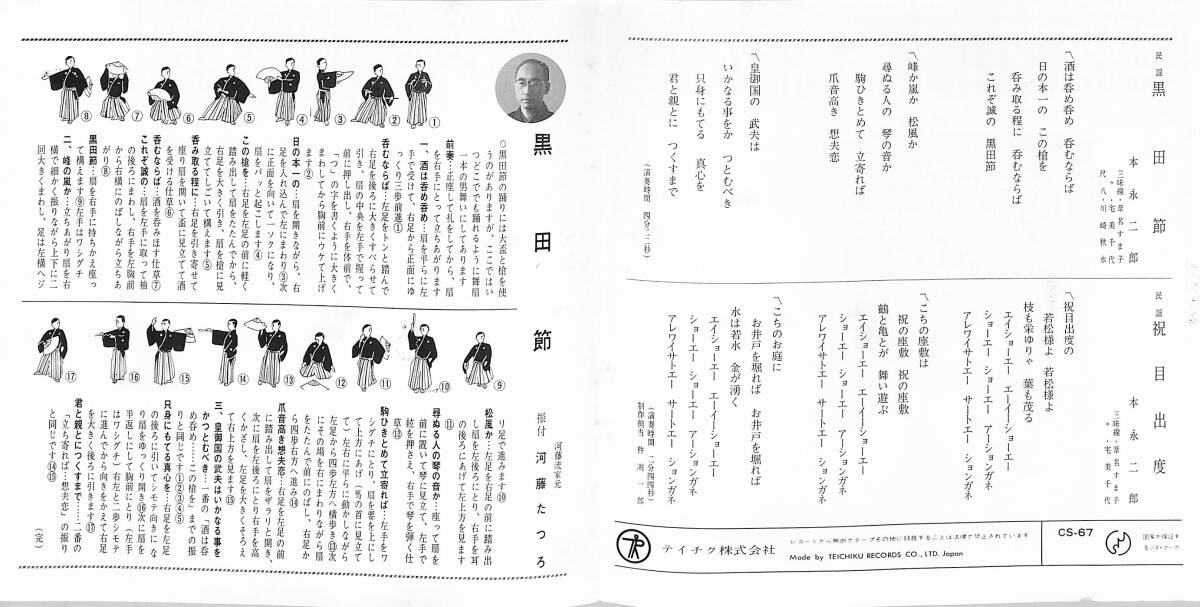 民謡 黒田節
本永二郎
三味線・菅名すま子
〃・宅美千代
尺八・川崎秋水
〽酒は呑め呑め 呑むならば
日の本一の この槍を
呑み取る程に 呑むならば
これぞ誠の 黒田節
〽峰か嵐か 松風か
尋ぬる人の 琴の音か
駒ひきとめて 立寄れば
爪音高き 想夫恋
〽皇御国の 武夫は
いかなる事をか つとむべき
只身にもてる 真心を
君と親とに つくすまで
(演奏時間 四分二秒)
民謡 祝目出度
本永二郎
三味線・菅名すま子
〃・宅美千代
〽祝目出度の
若松様よ 若松様よ
枝も栄ゆりゃ 葉も茂る
エイショーエー エーイーショーエー
ショーエー ショーエー アーションガネ
アレワイサトエー サートエー ションガネ
〽こちの座敷は
祝の座敷 祝の座敷
鶴と亀とが 舞い遊ぶ
エイショーエー エーイーショーエー
ショーエー ショーエー アーションガネ
アレワイサトエー サートエー ションガネ
〽こちのお庭に
お井戸を堀れば お井戸を堀れば
水は若水 金が湧く
エイショーエー エーイーショーエー
ショーエー ショーエー アーションガネ
アレワイサトエー サートエー ションガネ
(演奏時間 二分四四秒)
制作担当 柊剤一郎
テイチク株式会社
レコードから無断でテープその他に録音することは法律で禁止されています
Made by TEICHIKU RECORDS CO., LTD. Japan
CS-67
国家が保証するJISマーク
黒田節
河藤流家元
振付 河藤たつろ
⑧ ⑦ ⑥ ⑤ ④ ③ ② ①
○黒田節の踊りには大盃と槍を使
うのがありますが、ここではい
つどこででも踊れるように舞扇
一本の男舞いにしてあります
前奏…正座して礼をしてから、扇
を右手にとって立ちあがります
一、酒は呑め呑め…扇を平らに左
手で受けて、右足から正面にゆ
っくり三歩前進①
呑むならば…左足をトンと踏んで
右足を後ろに大きくすべらせて
引き、扇の中央を左手で握って
前に押し出し、右手を体前で、
「つ」の字を書くように大きく
まわしてから胸前にウケて上げ
ます②
日の本一の…扇を開きながら、右
足を入れ込んで左にまわり③次
に正面を向いて一ツになり、
扇をパッと起こします④
この槍を…右足を左足の前に軽く
踏み出して扇をたたんでから、
右足を大きく引き、扇を槍に見
立ててしごいて構えます⑤
呑み取る程に…右足を引き寄せて
座り扇を開いて盃に見立てて酒
を受ける仕草⑥
呑むならば…酒を呑みほす仕草⑦
これぞ誠の…扇を左手に取って袖
の後ろにまわし、右手を左胸前
から右横にのばしながら立ちあ
がり⑧
黒田節…扇を右手に持ちかえ座っ
て構えます⑨左手はワシグチ
二、峰の嵐か…立ちあがり扇を右
横で細かく振りながら上下に二
回大きくまわし、足は左横へジ
⑰ ⑯ ⑮ ⑭ ⑬ ⑫ ⑪ ⑩ ⑨
リ足で進みます⑩
松風か…左足を右足の前に踏み出
し扇を左後ろにとり、右手を耳
の後ろにあげて左上方を見ます
⑪
尋ぬる人の琴の音か…座って扇を
前に置いて琴に見立て、左手で
絃を押さえ、右手で琴を弾く仕
草⑫
駒ひきとめて立寄れば…左手をワ
シグチにとり、扇を要を上にし
て上方にあげ(馬の首に見立て
て)左右に平らに動かしながら
左足から四歩左方へ横歩き⑬次
にその場を右にまわりながら扇
をたたんで前にのばし、右足か
ら四歩右方へ進み⑭
爪音高き想夫恋…右足を左足の前
に踏み出して扇をザラリと開き、
次に扇を左後ろにとり右手を高
くかざし、左足を大きくそろえ
て右上方を見ます⑮
三、皇御国の武夫はいかなる事を
かつとむべき…一番の「酒は呑
め呑め…この槍を」までの振
りと同じです①②③④⑤
只身にもてる真心を…右足を左足
の後ろに引いてシモテ向きにな
り扇をゆっくり開き⑯次に扇を
半返しにして胸前にとり(左手
はワシグチ)右左と二歩シモテ
に進んでから向きをかえて右足
を大きく後ろに引きます⑰
君と親とにつくすまで…二番の
「立ち寄れば…想夫恋」の振り
と同じです⑭⑮
(完)